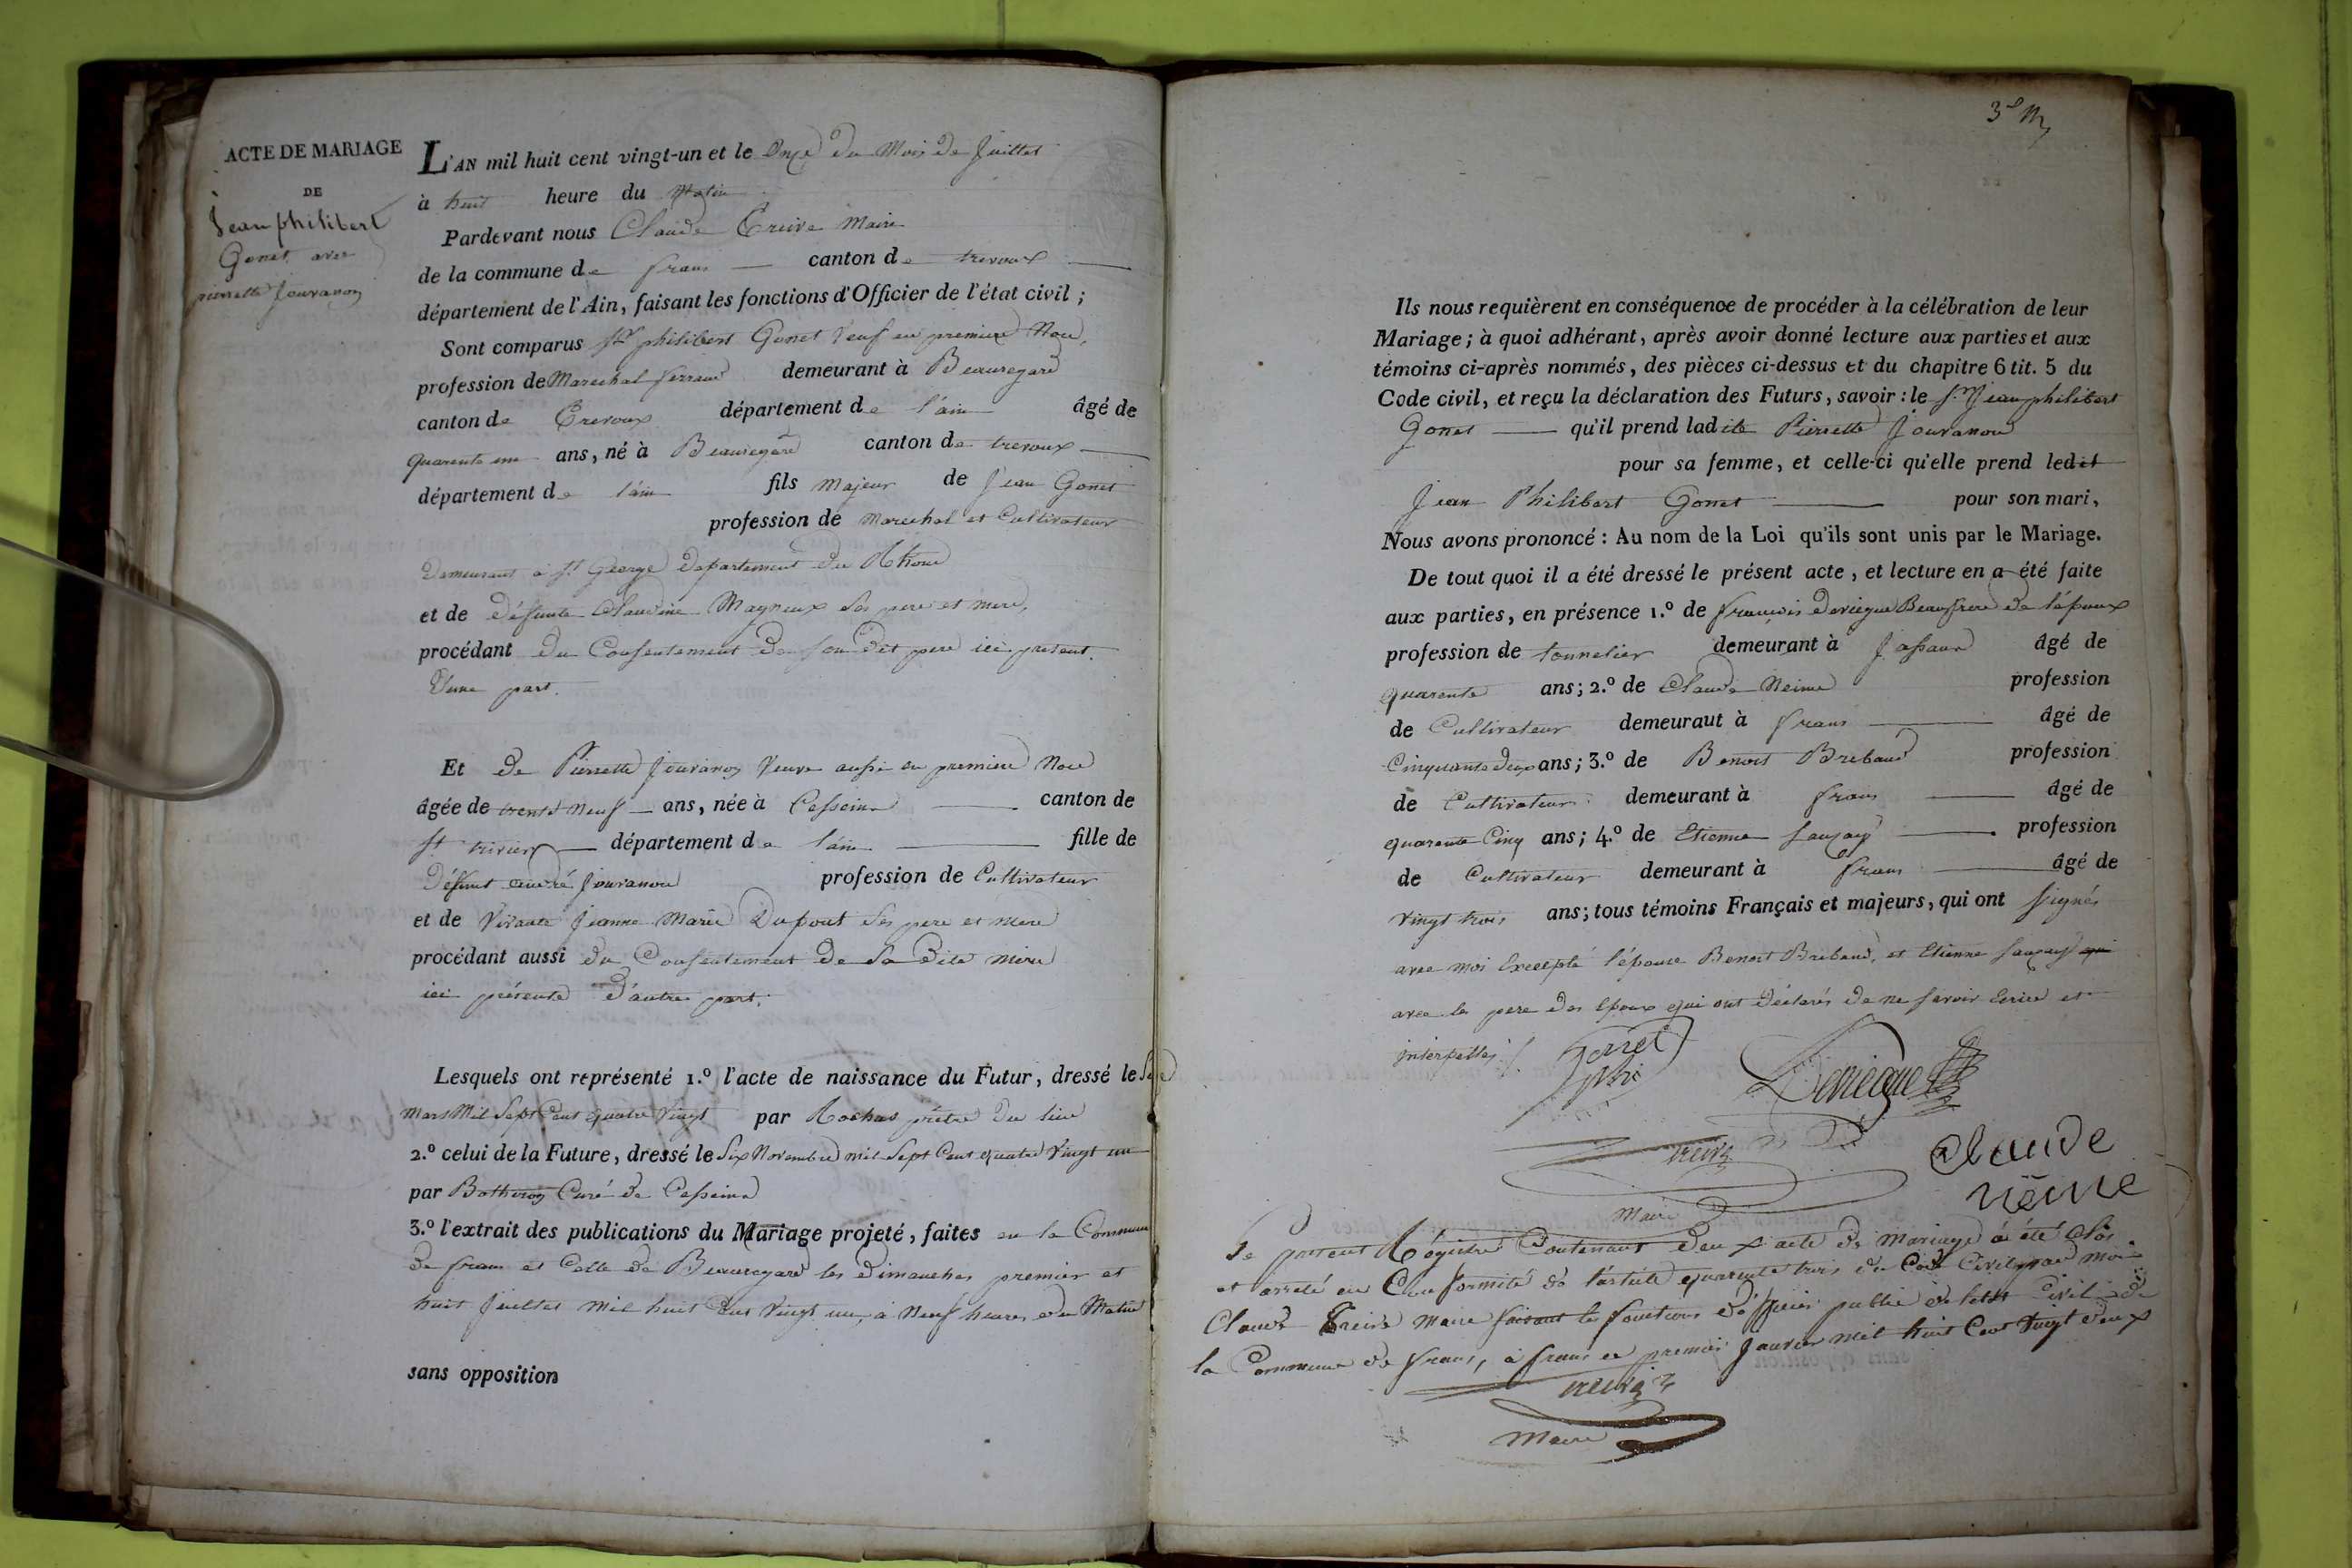 ACTE DE MARIAGE
DE
Jean philibert
Gonet avec
pierrette Jouvanon
L'AN mil huit cent vingt-un et le Onze du Mois de Juillet
à huit heure du Matin
Pardevant nous Claude Treive Maire
de la commune de frans canton de trevoux
département de l'Ain, faisant les fonctions d'Officier de l'état civil ;
Sont comparus philibert Gonet Veuf en premiere Noce,
profession de Marechal ferrand demeurant à Beauregard
canton de Trevoux département de l'ain âgé de
quarente un ans, né à Beauregard canton de trevoux
département de l'ain fils majeur de Jean Gonet
profession de marechal et Cultivateur
Demeurant à St George Departement du Rhone
et de Défunte Claudine Magneux Ses pere et mere,
procédant du Consentement de son dit pere ici present.
D'une part.
Et de Pierrette Jouvanon Veuve aussi en premiere Noce
âgée de trente Neuf ans, née à Cesseins canton de
St trivier département de l'ain fille de
Défunt andré Jouvanon profession de Cultivateur
et de Vivante Jeanne Marie Dupont Ses pere et Mere
procédant aussi du Consentement de Sa dite mere
ici présente D'autre part.
Lesquels ont représenté 1.º l'acte de naissance du Futur, dressé le
Mars Mil Sept Cent quatre Vingt par Rochas prêtre du lieu
2.º celui de la Future, dressé le Six Novembre mil Sept Cent quatre Vingt un
par Botheron Curé de Cesseins
3.º l'extrait des publications du Mariage projeté, faites en la Commune
de frans et Celle de Beauregard les Dimanches premier et
huit Juillet Mil huit Cent Vingt un, à Neuf heures du Matin
sans opposition
3e M
Ils nous requièrent en conséquence de procéder à la célébration de leur
Mariage ; à quoi adhérant, après avoir donné lecture aux parties et aux
témoins ci-après nommés, des pièces ci-dessus et du chapitre 6 tit. 5 du
Code civil, et reçu la déclaration des Futurs, savoir : le Sr Jean philibert
Gonet qu'il prend ladite Pierrette Jouvanon
pour sa femme, et celle-ci qu'elle prend ledit
Jean Philibert Gonet pour son mari,
Nous avons prononcé : Au nom de la Loi qu'ils sont unis par le Mariage.
De tout quoi il a été dressé le présent acte, et lecture en a été faite
aux parties, en présence 1.º de françois Deriegue Beaufrere de l'époux
profession de tonnelier demeurant à Jassans âgé de
quarente ans ; 2.º de Claude Neime profession
de Cultivateur demeuraut à frans âgé de
Cinquante deux ans ; 3.º de Benoit Brebaud profession
de Cultivateur demeurant à frans âgé de
quarente Cinq ans ; 4.º de Etienne Sauzay profession
de Cultivateur demeurant à frans âgé de
vingt trois ans ; tous témoins Français et majeurs, qui ont signés
avec moi Excepté l'épouse Benoit Brebaud, et Etienne Sauzay qui
avec le pere des Epoux qui ont déclarés de ne savoir Ecrire et
interpellés
Gonet
phi
Deriegue
treive
Maire
Claude
neime
Le present Régistre Contenant deux acte de Mariage a été Clos
et arreté en Conformité de l'article quarente trois du Code Civil par moi
Claude Treive Maire faisant les fonctions d'officier public de l'etat Civil de
la Commune de frans, à frans ce premier Janvier mil huit Cent Vingt deux
treive
Maire